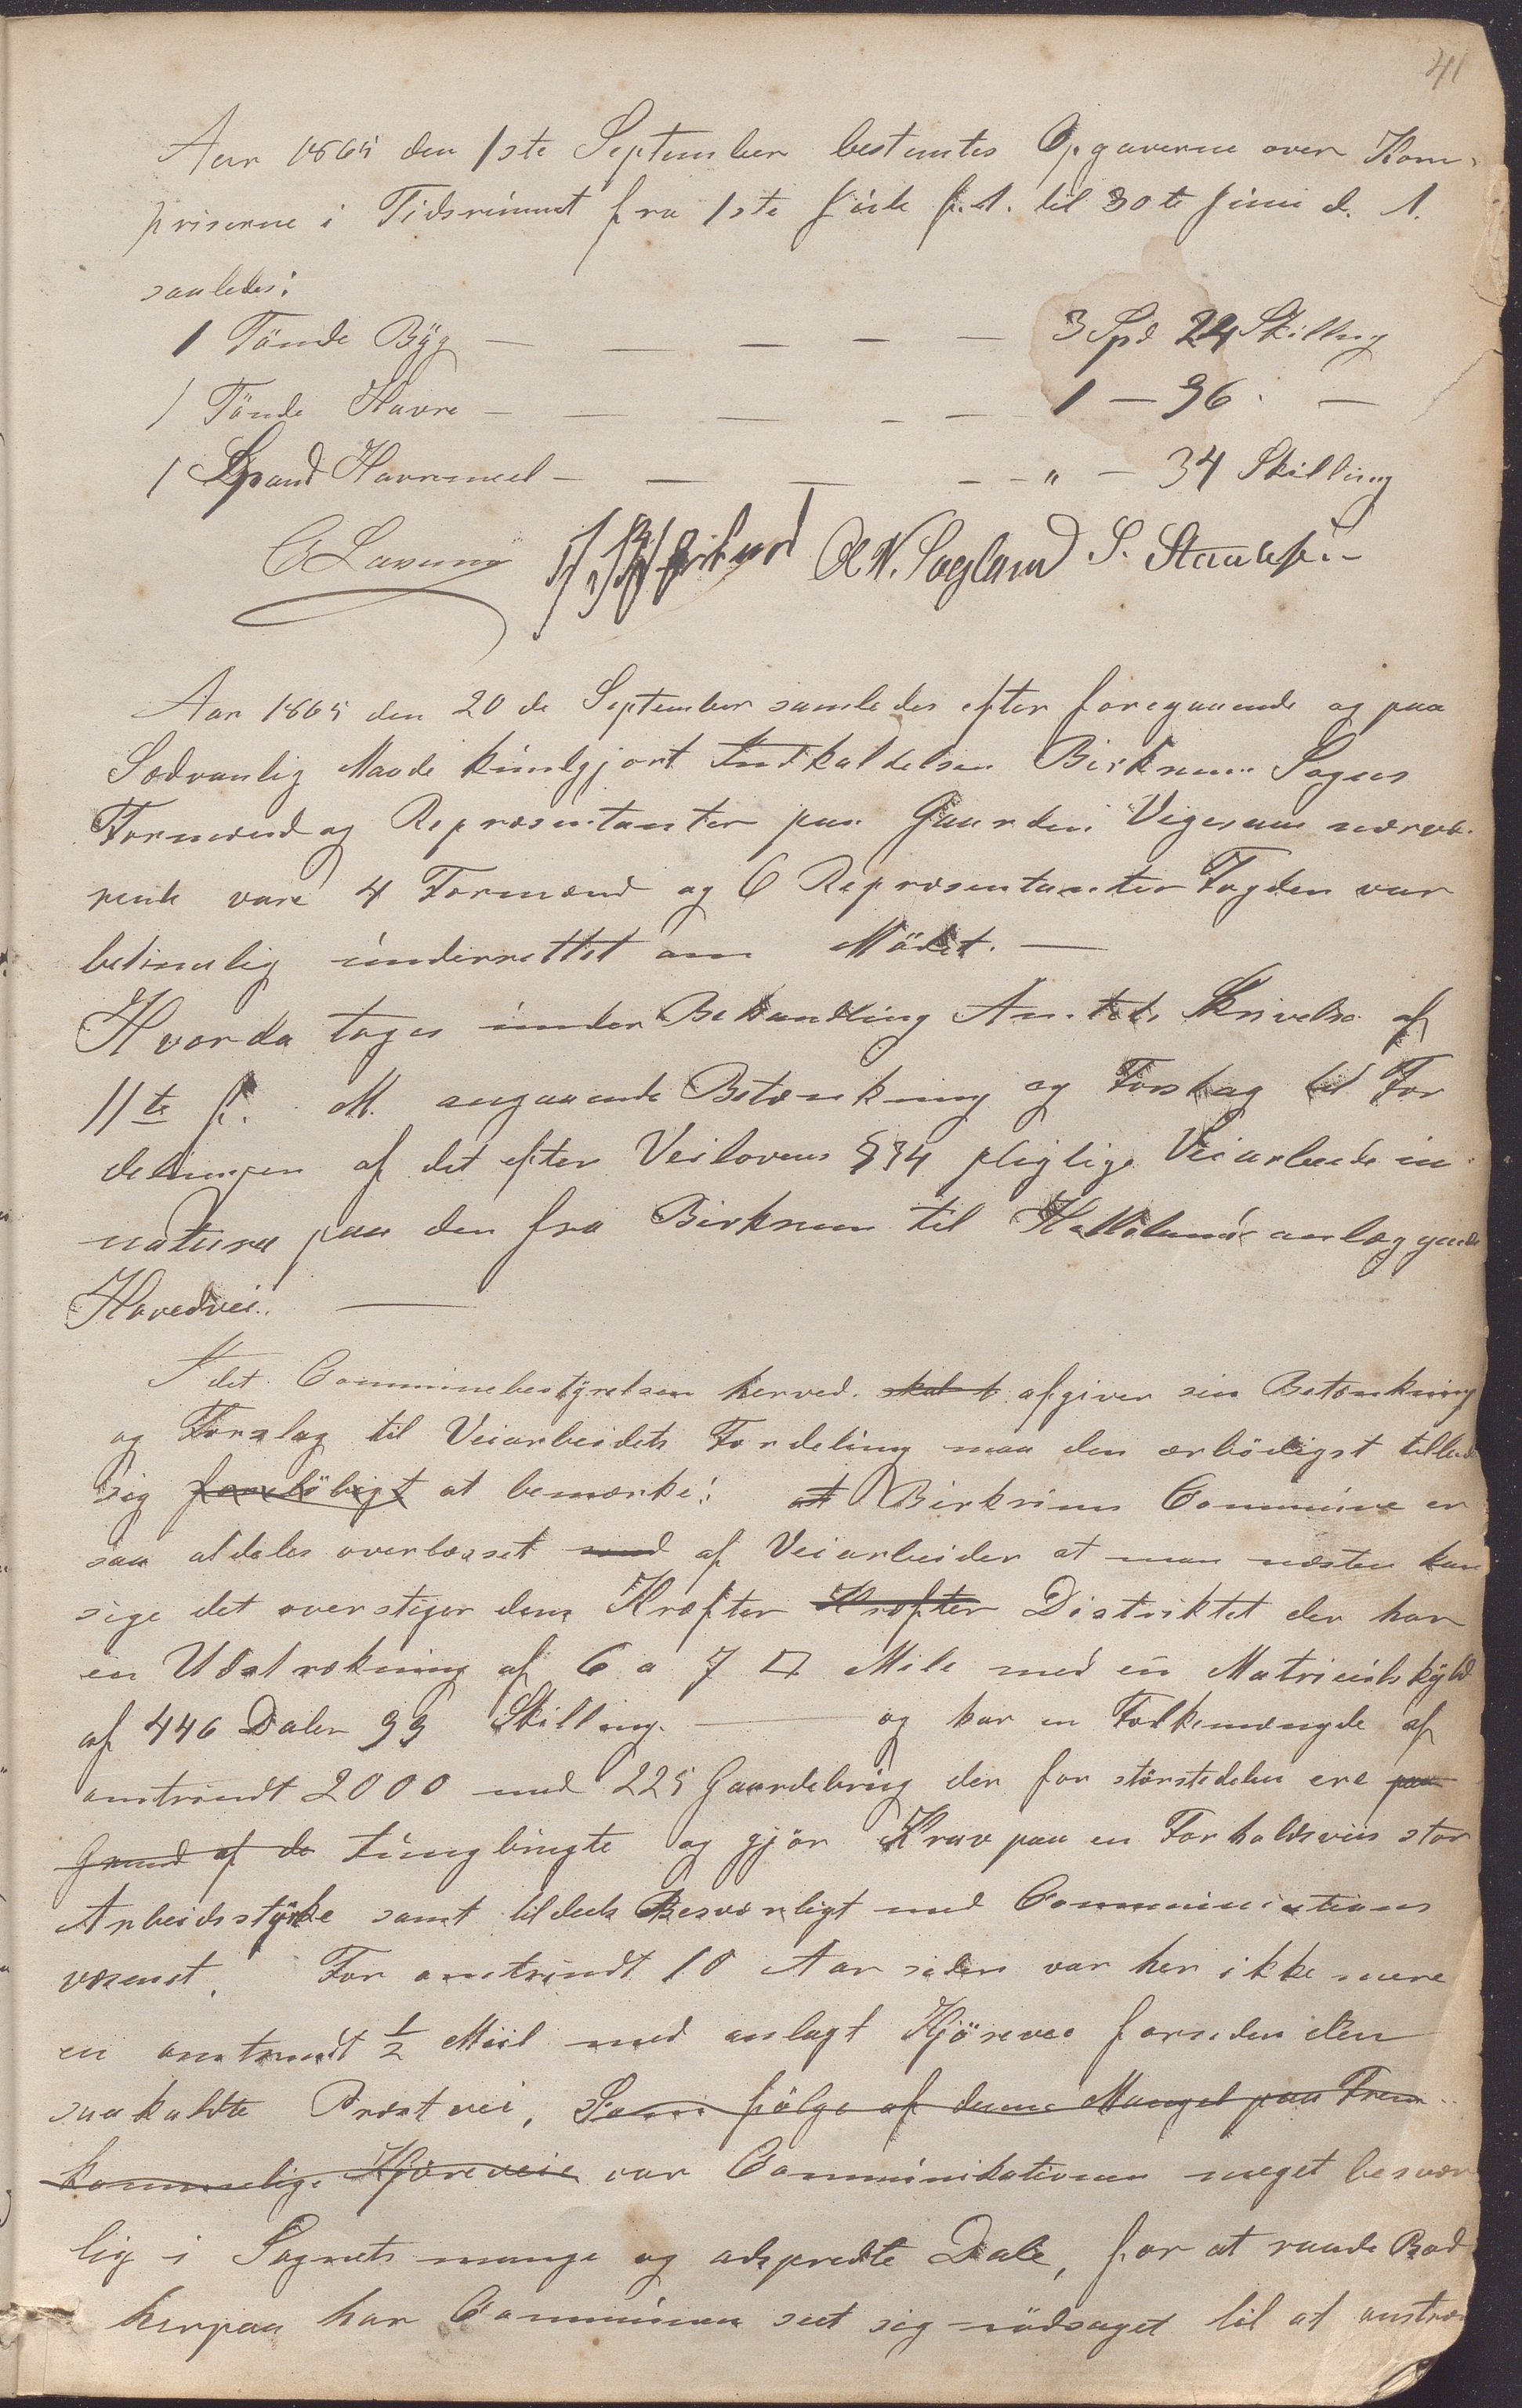 41
Aar 1865 den 1ste September bestemtes Opgaverne over Korn-
priserne i Tidsrummet fra 1ste Juli f. A. til 30te Juni d. A.
saaledes:
1 Tönde Byg — — — — — 3 Spd 24 Skilling
1 Tönde Havre — — — — — 1 — 96 —
1 Spand Havremeel — — — — — " — 34 Skilling
Aar 1865 den 20de September samledes efter foregaaende og paa
Sedvanlig Maade kundgjort Indkaldelse Birkrem Sogns
Formænd og Repræsentanter paa Gaarden Vigesaa nærvæ-
rende vare 4 Formænd og 6 Repræsentanter Fogden var
betimelig underrettet om Mödet. —
Hvorda toges under Behandling Amtets Skrivelse af
11te f. M. angaaende Betænkning og Forslag til For
delingen af det efter Veilovens § 34 pligtige Veiarbeide in
natura paa den fra Birkrem til Hetland anlæggende
Hovedvei. —
I det Communebestyrelsen herved skulet afgiver sin Betænkning
og Forslag til Veiarbeidets Fordeling maa den ærbödigst tillade
sig foreløbigt at bemærke: at Birkrems Commune er
saa aldeles overlæsset med af Veiarbeider at man næsten kan
sige det overstiger dens Kræfter Kræfter Distriktet der har
en Udstrækning af 6 a 7 □ Mile med en Matriculskyld
af 446 Daler 99 Skilling — og har en Folkemængde af
omtrindt 2000 med 225 Gaardebrug der for störstedelen ere paa
Grund af de tungbrugte og gjör Krav paa en Forholdsviis stor
Arbeidsstyrke samt tildeels Besværligt med Communications
væsenet. For omtrindt 10 Aar siden var her ikke mere
en omtrindt ½ Miil med anlagt Kjörevei foruden den
saakaldte Præstvei, Som fölge af denne Mangel paa Frem-
kommelige Kjöreveie var Communikationen meget besvær
lig i Sognets mange og adspredte Dale, for at raade Bod
herpaa har Communen seet sig nödsaget til at anstræ